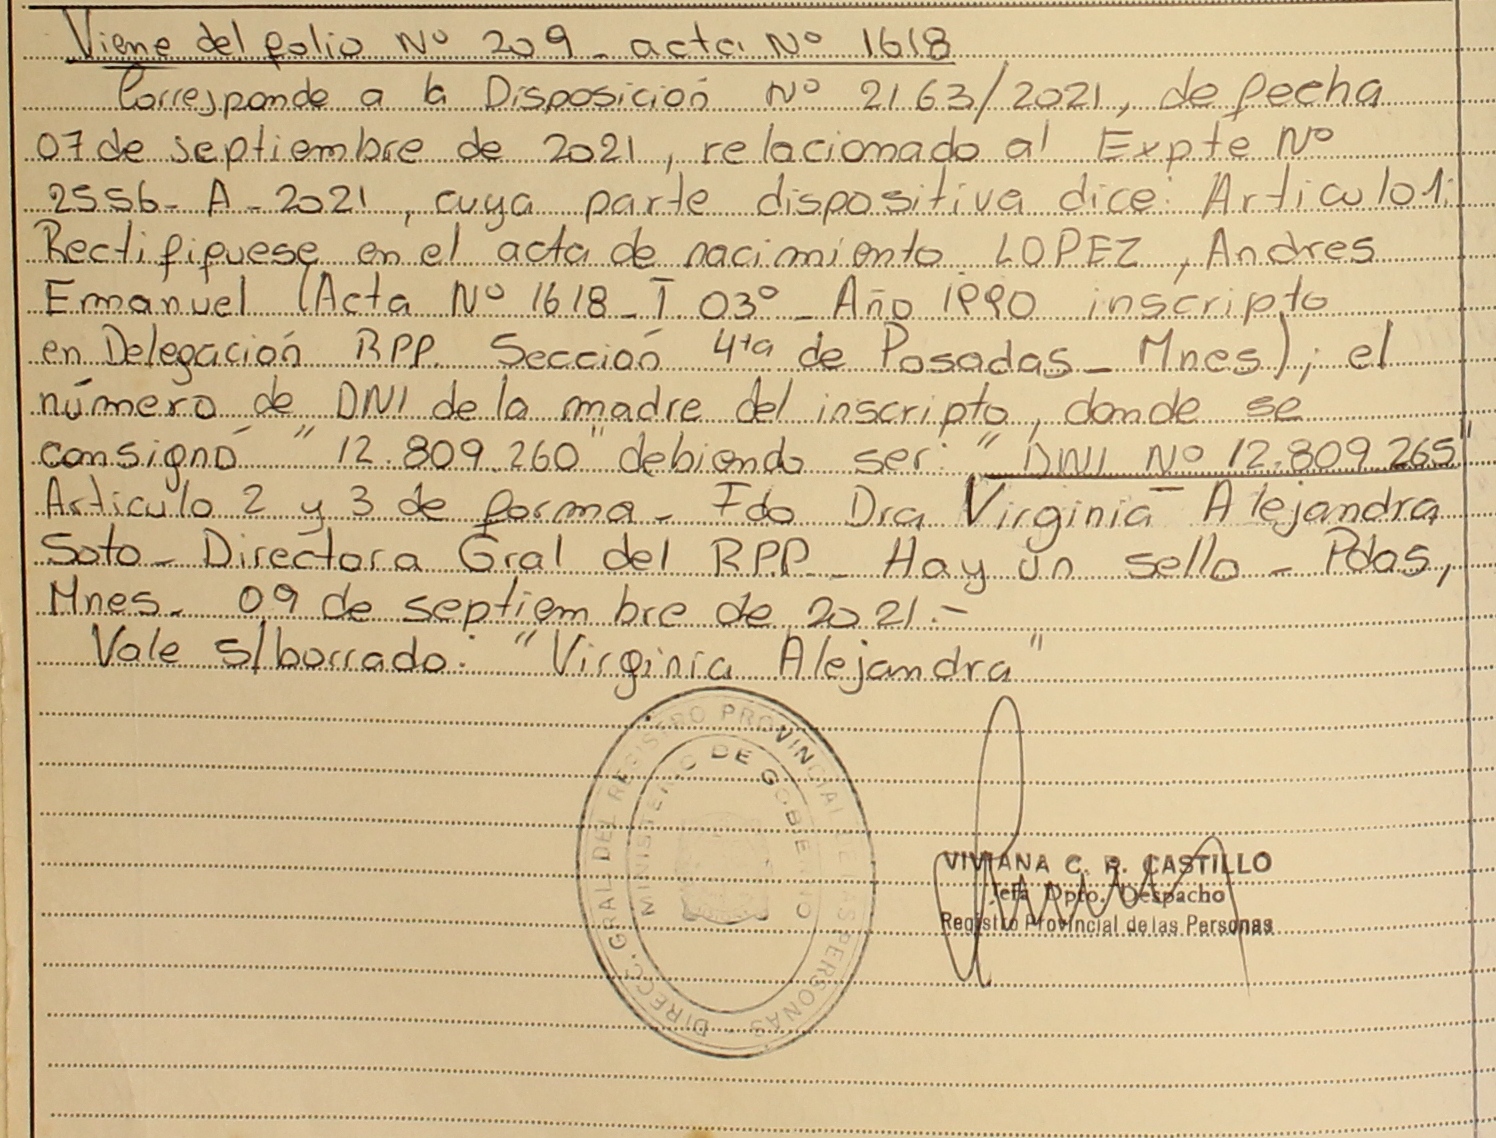 Viene del folio Nº 209 - acta Nº 1618
Corresponde a la Disposición Nº 2163/2021, de fecha
07 de septiembre de 2021, relacionado al Expte Nº
2556- A - 2021, cuya parte dispositiva dice: Articulo 1:
Rectifiquese en el acta de nacimiento LOPEZ, Andres
Emanuel (Acta Nº 1618 - T. 03º - Año 1990 inscripto
en Delegación RPP. Sección 4ta de Posadas - Mnes); el
número de DNI de la madre del inscripto, donde se
consignó "12.809.260" debiendo ser: "DNI Nº 12.809.265"
Articulo 2 y 3 de forma - Fdo Dra Virginia Alejandra
Soto - Directora Gral del RPP - Hay un sello - Pdas,
Mnes. 09 de septiembre de 2021.-
Vale s/borrado: "Virginia Alejandra"
DIRECC. GRAL. DEL REGISTRO PROVINCIAL DE LAS PERSONAS
MINISTERIO DE GOBIERNO
VIVIANA C. R. CASTILLO
Jefa Dpto. Despacho
Registro Provincial de las Personas